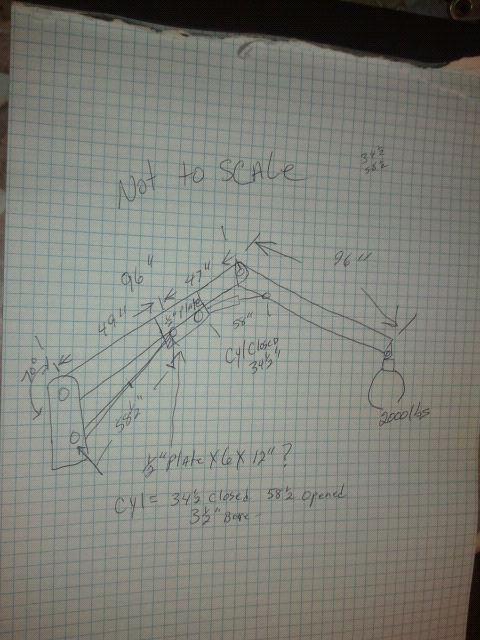 Not to SCALE
34½
58½
96"
96"
47"
49"
½" Plate
58"
Cyl Closed
34½"
70°
58½"
2000lbs
½" Plate X 6 X 12" ?
Cyl = 34½ Closed 58½ Opened
3½" Bore